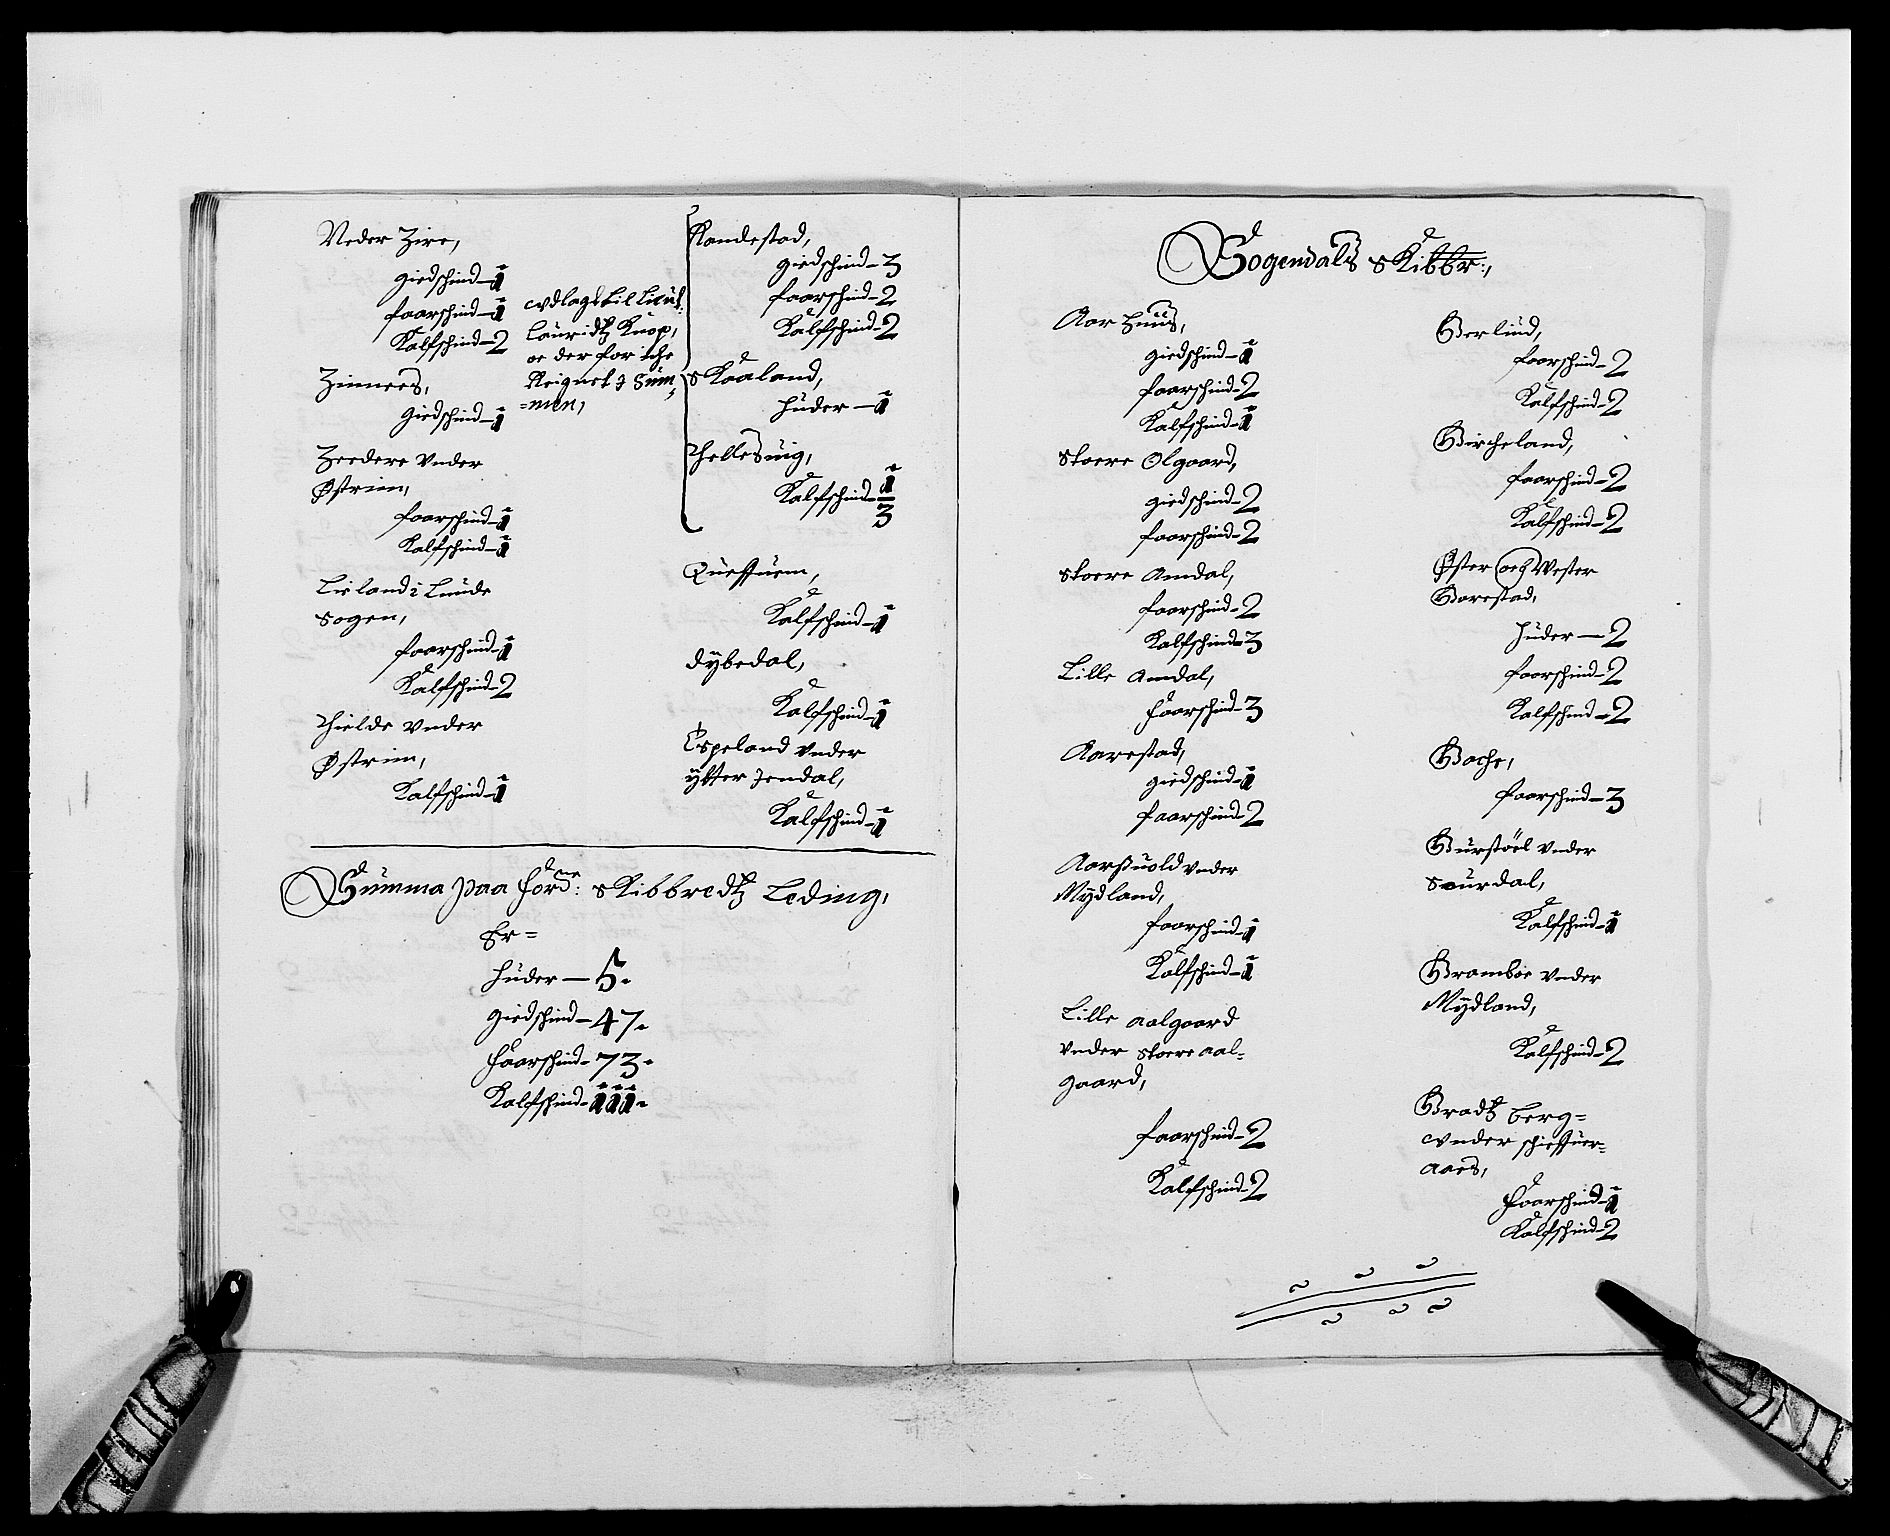 Neder Zire,
giedschind - 1
faarschind - 1
Kalfschind - 2
Zinnees,
giedschind - 1
Zeedere vnder
Østrim,
faarschind - 1
Kalfschind - 1
Lieland i Lunde
Sogen,
faarschind - 1
Kalfschind - 2
Thielde vnder
Østrim,
Kalfschind - 1
vdlagt til Lieut:
Lauridtz Knop,
oc der for iche
Reignet i Sum
=men,
Randestad,
giedschind - 3
faarschind - 2
Kalfschind - 2
Skaaland,
Huder - 1
Thellesuig,
Kalfschind - 1/3
Queffuem,
Kalfschind - 1
dybedal,
Kalfschind - 1
Espeland vnder
ytter Jendal,
Kalfschind - 1
Summa paa ford: Skibbredtz Leding,
Er =
Huder - 5.
giedschind - 47.
Faarschind - 73.
Kalfschind - 111.
Sogendals Skibbr:,
Aarhuus,
giedschind - 1
faarschind - 2
Kalfschind - 1
Stoere Olgaard,
giedschind - 2
faarschind - 2
Stoere Amdal,
faarschind - 2
Kalfschind - 3
Lille Amdal,
Faarschind - 3
Aarestad,
giedschind - 1
faarschind - 2
Aarßuold vnder
Mydland,
faarschind - 1
Kalfschind - 1
Lille aalgaard
vnder Stoere aal=
gaard,
faarschind - 2
Kalfschind - 2
Berliud,
faarschind - 2
Kalfschind - 2
Bircheland,
faarschind - 2
Kalfschind - 2
Øster och Wester
Barestad,
Huder - 2
faarschind - 2
Kalfschind - 2
Bache,
faarschind - 3
Burstöel vnder
Saurdal,
Kalfschind - 1
Bramboe vnder
Mydland,
Kalfschind - 2
Bradtzberg=
vnder schieffuer=
aaes,
Faarschind - 1
Kalfschind - 2